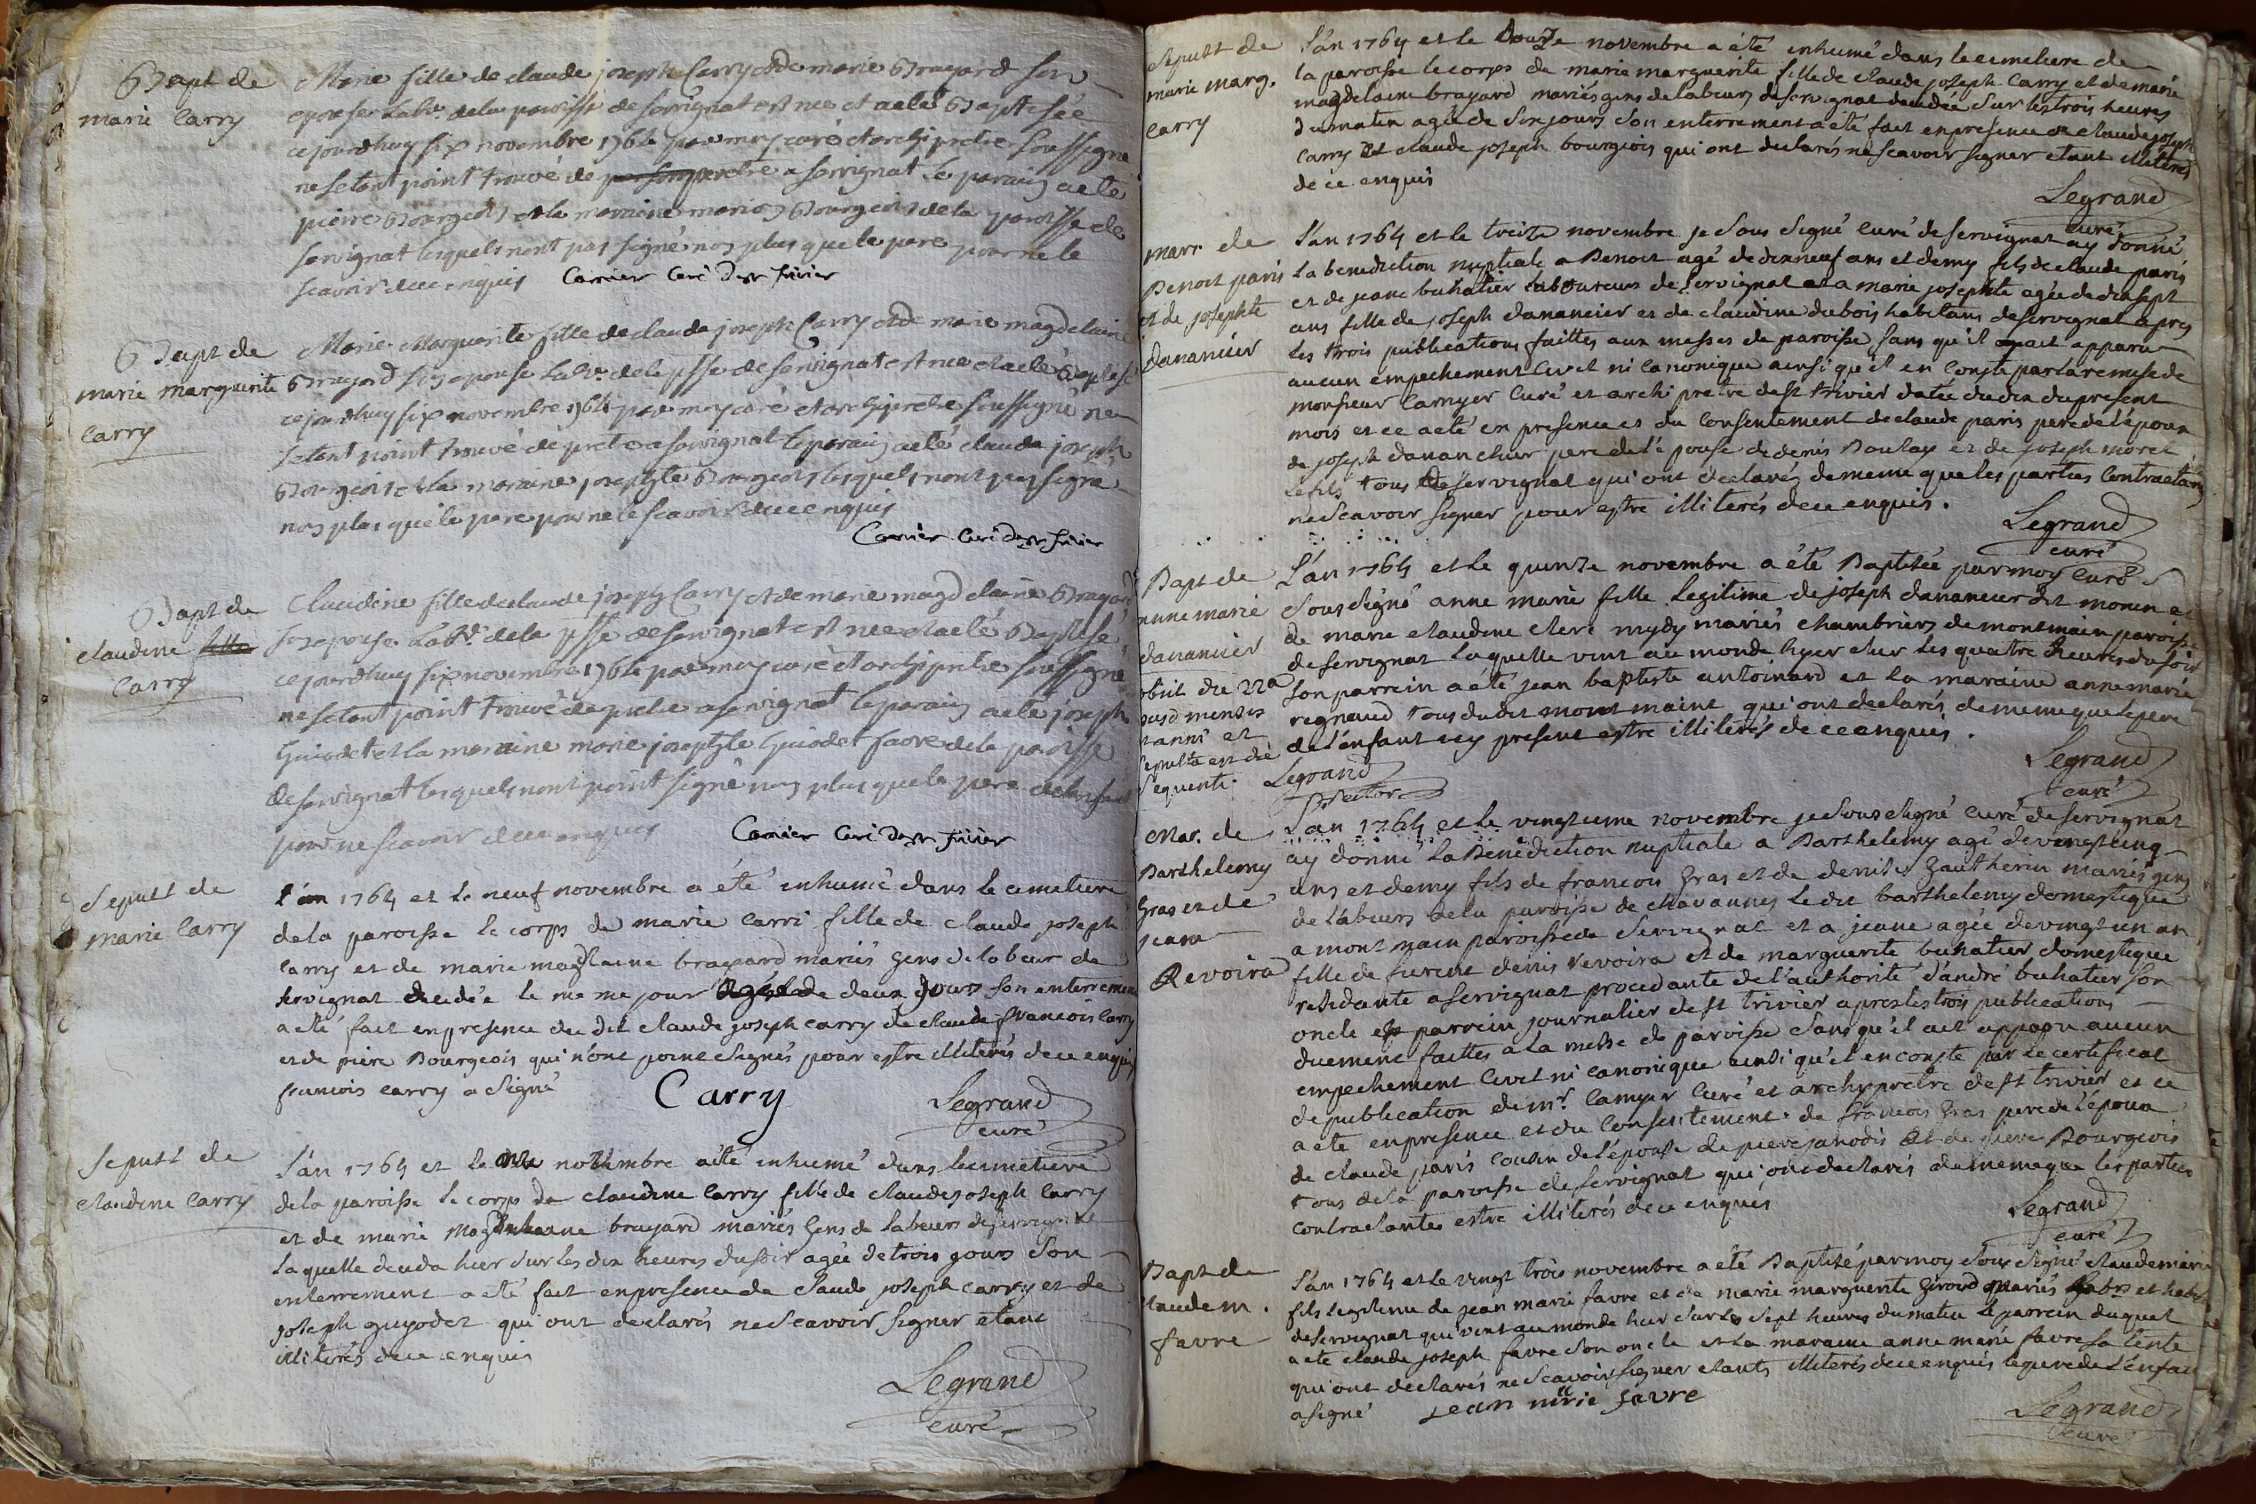 Bapt de
marie Carry
Marie fille de claude joseph Carry et de marie Brayard son
epouse Labr. de la paroisse de servignat est née et a eté Baptisée
ce jourdhuy six novembre 1764 par moy curé et archiprêtre soussigné
ne setant point trouvé de prêtre a servignat le parain a eté
pierre Bourgeois et la maraine marie Bourgeois de la paroisse de
servignat lesquels nont pas signé non plus que le pere pour ne le
scavoir de ce enquis Camier Curé de St trivier
Bapt de
marie marguerite
Carry
Marie Marguerite fille de claude joseph Carry et de marie magdelaine
Brayard son epouse Labr. de la psse de servignat est née et a eté baptisé
ce jourdhuy six novembre 1764 par moy curé et archiprêtre soussigné ne
setant point trouvé de pretre a servignat le parain a eté claude joseph
Bourgeois et la maraine josephte Bourgeois lesquels nont pas signé
non plus que le pere pour ne le scavoir de ce enquis
Camier Curé de St trivier
Bapt de
claudine
Carry
Claudine fille de claude joseph Carry et de marie magdelaine Brayard
son epouse Labr. de la psse de servignat est née et a eté Baptisé
ce jourdhuy six novembre 1764 par moy curé et archiprêtre soussigné
ne setant point trouvé de pretre a servignat le parain a eté joseph
Guiodet et la maraine marie josephte Guiodet favre de la paroisse
de servignat lesquels nont point signé non plus que le pere de lenfant
pour ne scavoir de ce enquis Camier Curé de St trivier
Sepult de
marie Carry
L'an 1764 et le neuf novembre a été inhumé dans le cimetiere
de la paroisse le corps de marie Carri fille de Claude joseph
Carry et de marie magdlaine brayard mariés gens de labeur de
servignat decedée le meme jour agée de deux jours son enterrement
a eté fait en presence du dit claude joseph carry de claude francois Carry
et de piere Bourgeois qui n'ont point signés pour estre illiterés de ce enquis
francois carry a signé Carry Legrand
curé
Sepult de
claudine Carry
L'an 1764 et le onze novembre a eté inhumé dans le cimetiere
de la paroisse le corps de claudine Carry fille de claude joseph Carry
et de marie Magdelaine brayard mariés gens de labeurs de servignat
laquelle deceda hier sur les dix heures du soir agée de trois jours son
enterrement a eté fait en presence de claude joseph carry et de
joseph guyodet qui ont declarés ne scavoir signer etant
illiterés de ce enquis
Legrand
curé
Sepult de
marie marg.
Carry
L'an 1764 et le douze novembre a été inhumé dans le cimetiere de
la paroisse le corps de marie marguerite fille de claude joseph Carry et de marie
magdelaine brayard mariés gens de labeurs de servignat decedée sur les trois heures
du matin agée de six jours son enterrement a été fait en presence de claude joseph
Carry et claude joseph bourgeois qui ont declarés ne scavoir signer etant illiterés
de ce enquis
Legrand
curé
Marr. de
Benoit paris
et de josephte
danancier
L'an 1764 et le treize novembre je sous signé curé de servignat ay donné
la benediction nuptiale a Benoit agé de dix neuf ans et demy fils de claude paris
et de jeane buhatier laboureurs de servignat et a marie josephte agée de dix sept
ans fille de joseph danancier et de claudine dubois habitans de servignat apres
les trois publications faittes aux messes de paroisse sans qu'il ait apparu
aucun empechement civil ni canonique ainsi qu'il en conste par la remise de
monsieur Camyer curé et archi pretre de st trivier datée du dix du present
mois et ce a eté en presence et du consentement de claude paris pere de l'époux
de joseph danancier pere de l'épouse de denis Boulay et de joseph morel
le fils tous de servignat qui ont declarés de meme que les parties contractantes
ne scavoir signer pour estre illiterés de ce enquis.
Legrand
curé
Bapt de
anne marie
danancier
obiit die 22a
ejusd mensis
et anni et
sepulta est die
sequenti. Legrand
Rector
L'an 1764 et le quinze novembre a été Baptisée par moy curé
sous signé anne marie fille legitime de joseph danancier dit monin et
de marie claudine clerc mydy mariés chambriers de montmain paroisse
de servignat laquelle vint au monde hyer sur les quatre heures du soir
son parrein a été jean baptiste antoinard et la maraine anne marie
regnaud tous du dit mont maint qui ont declarés de meme que le pere
de l'enfant icy present estre illiterés de ce enquis.
Legrand
curé
Mar. de
Barthelemy
Gras et de
jeane
Revoira
L'an 1764 et le vingt une novembre je sous signé curé de servignat
ay donné la Benediction nuptiale a Barthelemy agé de vingt cinq
ans et demy fils de francois Gras et de denise Gautherin mariés gens
de labeurs de la paroisse de chavannes le dit barthelemy domestique
a mont main paroisse de servignat et a jeane agée de vingt un an
fille de furent denis revoira et de marguerite buhatier domestique
residante a servignat procedante de l'authorité d'andré buhatier son
oncle et parrein journalier de st trivier apres les trois publications
duement faittes a la messe de paroisse sans qu'il ait apparu aucun
empechement civil ni canonique ainsi qu'il en conste par le certificat
de publication de mr. Camyer curé et archyprêtre de st trivier et ce
a ete en presence et du consentement de francois gras pere de l'époux
de claude paris cousin de l'épouse de piere janodis et de piere Bourgeois
tous de la paroisse de servignat qui ont declarés de meme que les parties
contractantes estre illiterés de ce enquis
Legrand
curé
Bapt de
claude m.
favre
L'an 1764 et le vingt trois novembre a eté Baptisé par moy sous signé claude marie
fils legitime de jean marie favre et de marie marguerite giroud mariés Labrs et habt
de servignat qui vint au monde hier sur les sept heures du matin le parrein duquel
a ete claude joseph favre son oncle et la maraine anne marie favre sa tente
qui ont declarés ne scavoir signer etants illiterés de ce enquis le pere de l'enfan
a signé jean mirie favre
Legrand
curé